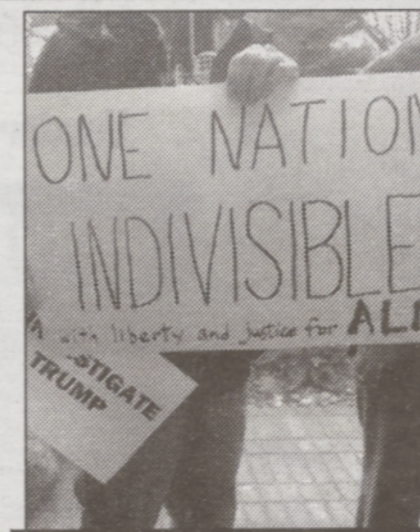 ONE NATION
INDIVISIBLE
with liberty and justice for ALL
STIGATE
TRUMP